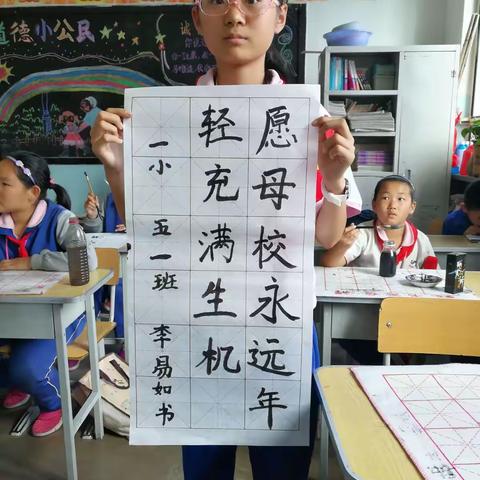 道德小公民
愿母校永远年
轻充满生机
一小 五一班 李易如书